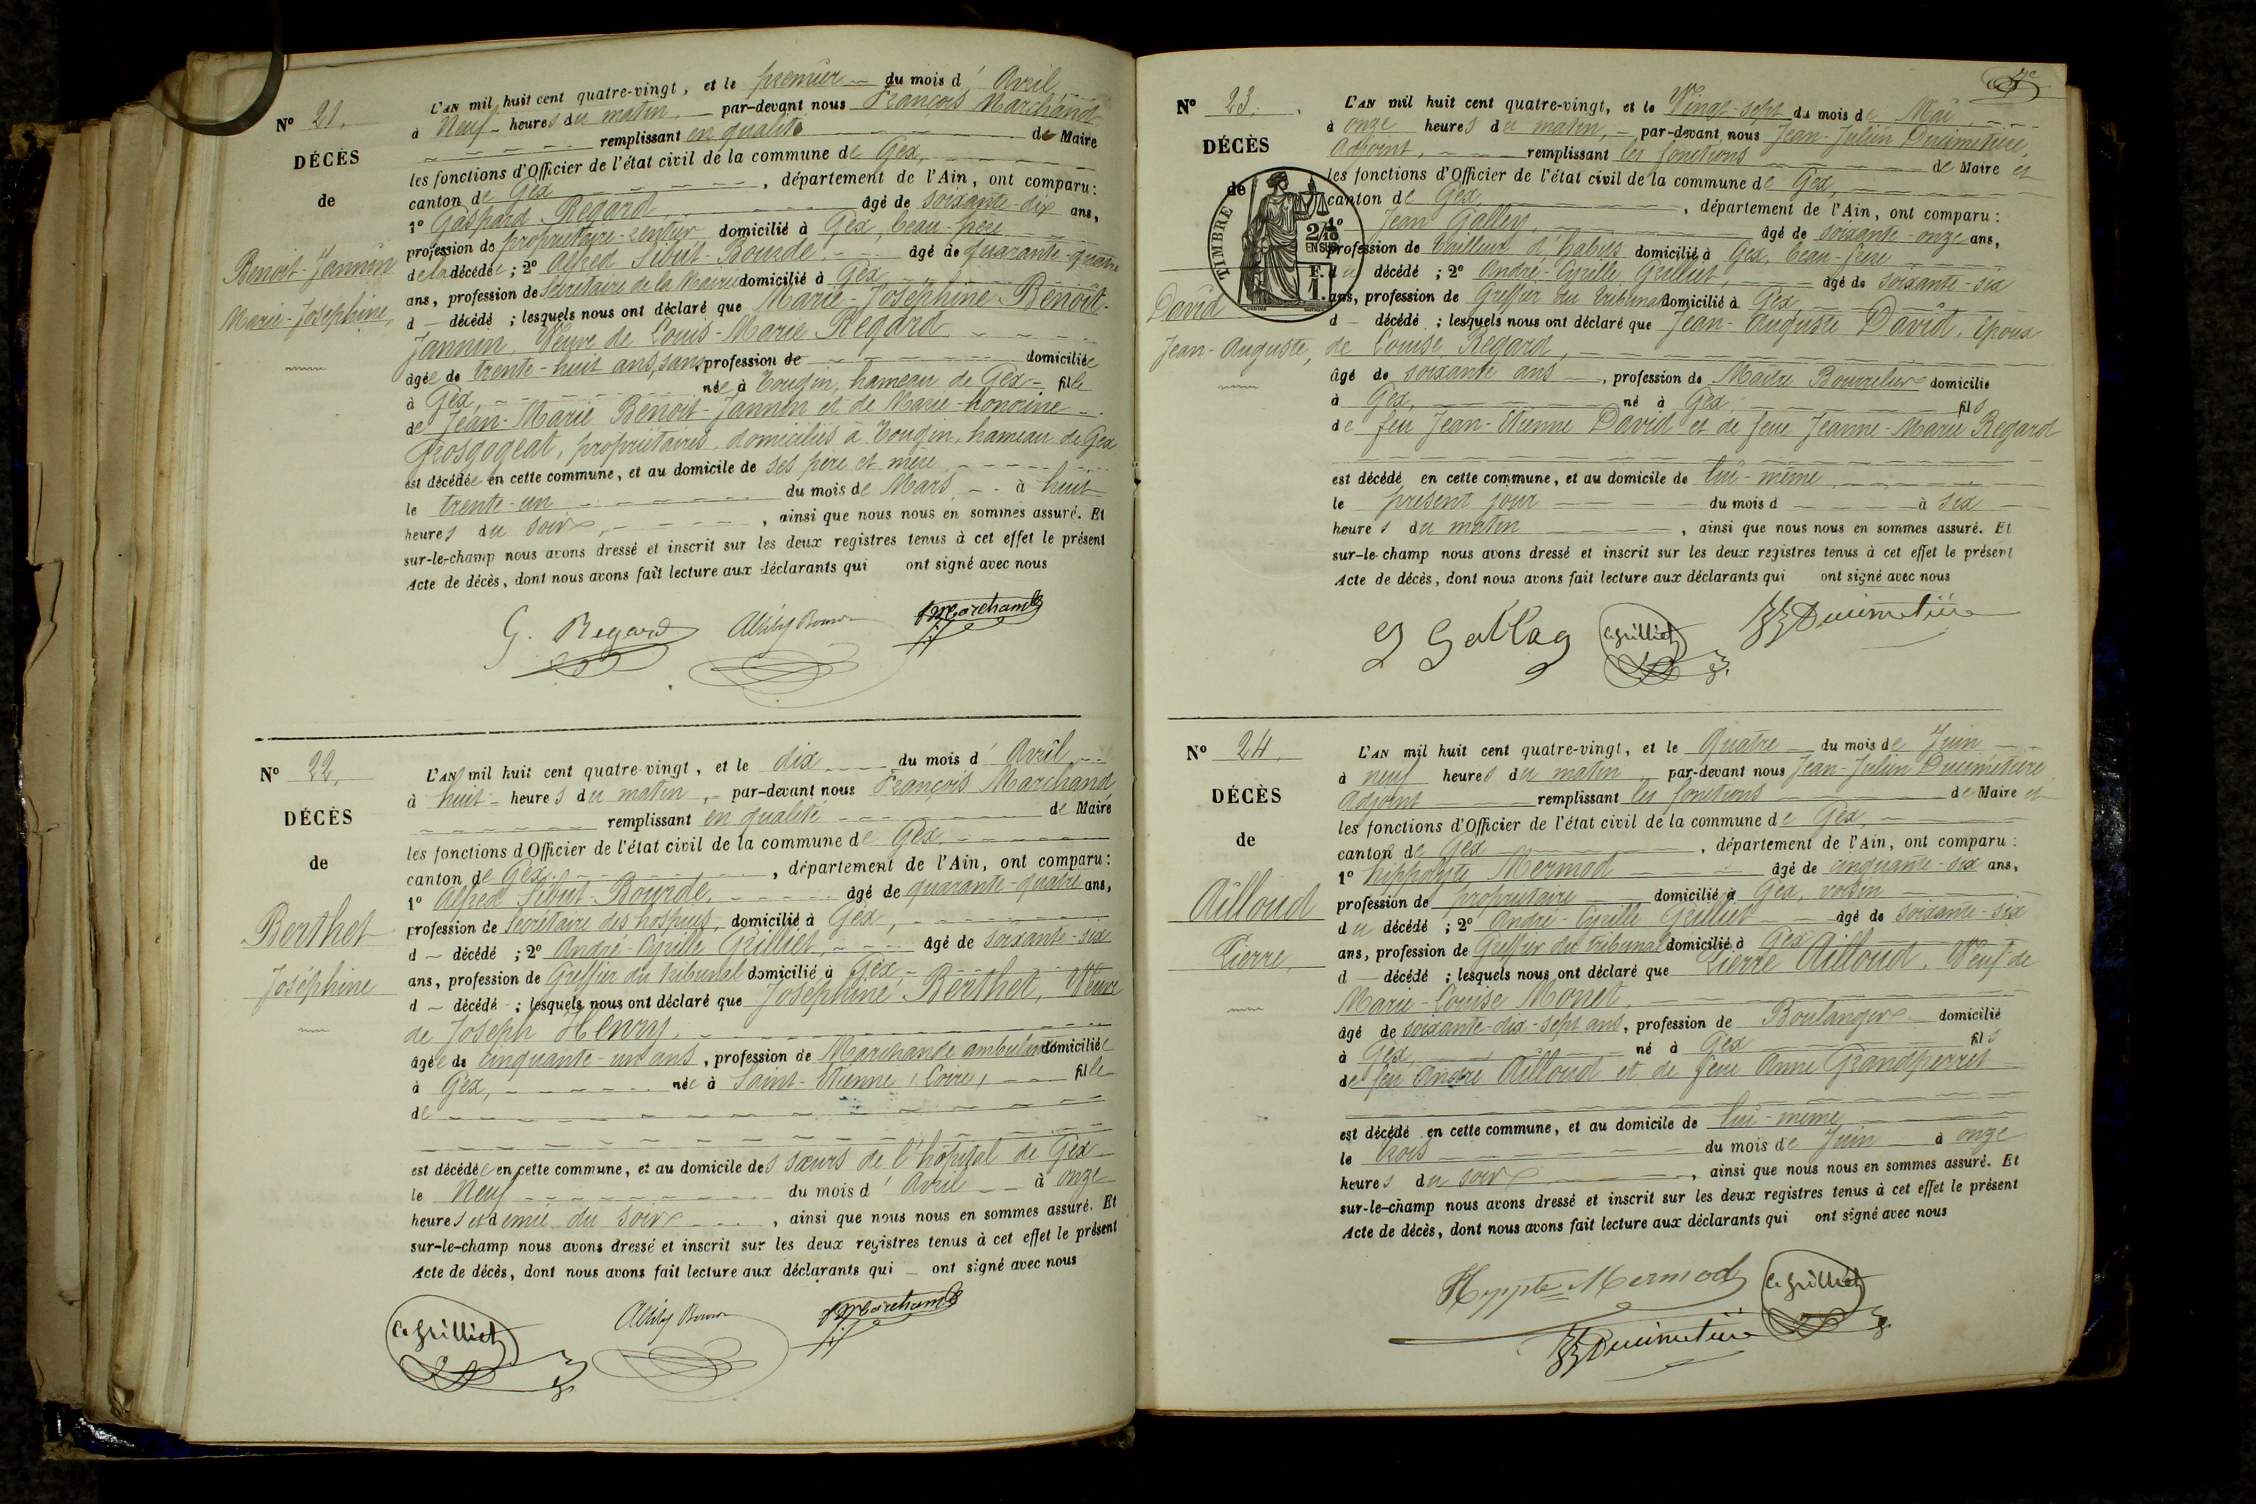 N° 21.
DÉCÈS
de
Benoit-Jannin
Marie-Joséphine,
L'AN mil huit cent quatre-vingt, et le premier du mois d'Avril
à Neuf heures du matin, par-devant nous François Marchand
remplissant en qualité de Maire
les fonctions d'Officier de l'état civil de la commune de Gex,
canton de Gex, département de l'Ain, ont comparu:
1° Gaspard Regard, âgé de soixante-dix ans,
profession de propriétaire-rentier domicilié à Gex, beau-père
de la décédée; 2° Alfred Sibuit-Bourde, âgé de quarante-quatre
ans, profession de Secrétaire de la Mairie domicilié à Gex
d — décédé ; lesquels nous ont déclaré que Marie-Joséphine Benoit-
Jannin, Veuve de Louis-Marie Regard
âgée de trente-huit ans, sans profession de domiciliée
à Gex, née à Tougin, hameau de Gex fille
de Jean-Marie Benoit-Jannin et de Marie-Honorine
Grosgogeat, propriétaires, domiciliés à Tougin, hameau de Gex
est décédée en cette commune, et au domicile de ses père et mère
le trente-un du mois de Mars à huit
heures du soir, ainsi que nous nous en sommes assuré. Et
sur-le-champ nous avons dressé et inscrit sur les deux registres tenus à cet effet le présent
Acte de décès, dont nous avons fait lecture aux déclarants qui ont signé avec nous
G. Regard
Marchand
N° 22,
DÉCÈS
de
Berthet
Joséphine
L'AN mil huit cent quatre-vingt, et le dix du mois d'Avril
à huit heures du matin, par-devant nous François Marchand
remplissant en qualité de Maire
les fonctions d'Officier de l'état civil de la commune de Gex
canton de Gex, département de l'Ain, ont comparu:
1° Alfred Sibuit-Bourde, âgé de quarante-quatre ans,
profession de Secrétaire des hospices, domicilié à Gex,
d — décédé ; 2° André-Cyrille Grilliet, âgé de soixante-six
ans, profession de Greffier du tribunal domicilié à Gex
d — décédé ; lesquels nous ont déclaré que Joséphine Berthet, Veuve
de Joseph Henry,
âgée de cinquante-un ans, profession de Marchande ambulante domiciliée
à Gex, née à Saint-Etienne (Loire) fille
de
est décédée en cette commune, et au domicile des sœurs de l'hôpital de Gex
le Neuf du mois d'Avril à onze
heures et demie du soir, ainsi que nous nous en sommes assuré. Et
sur-le-champ nous avons dressé et inscrit sur les deux registres tenus à cet effet le présent
Acte de décès, dont nous avons fait lecture aux déclarants qui — ont signé avec nous
C. Grilliet
Marchand
N° 23.
DÉCÈS
de
TIMBRE
2/10
EN SUS
F.
1.
David
Jean-Auguste,
L'AN mil huit cent quatre-vingt, et le Vingt-sept du mois de Mai
à onze heures du matin, par-devant nous Jean-Julien Ducimetière,
Adjoint, remplissant les fonctions de Maire et
les fonctions d'Officier de l'état civil de la commune de Gex,
canton de Gex, département de l'Ain, ont comparu:
1° Jean Gallay, âgé de soixante-onze ans,
profession de tailleur d'habits domicilié à Gex, beau-frère
du décédé ; 2° André-Cyrille Grilliet, âgé de soixante-six
ans, profession de Greffier du tribunal domicilié à Gex
d — décédé ; lesquels nous ont déclaré que Jean-Auguste David, époux
de Louise Regard,
âgé de soixante ans, profession de Maître Bourrelier domicilié
à Gex, né à Gex fils
de feu Jean-Etienne David et de feue Jeanne-Marie Regard
est décédé en cette commune, et au domicile de lui-même
le présent jour du mois d à six
heures du matin, ainsi que nous nous en sommes assuré. Et
sur-le-champ nous avons dressé et inscrit sur les deux registres tenus à cet effet le présent
Acte de décès, dont nous avons fait lecture aux déclarants qui ont signé avec nous
C. Grilliet
Ducimetière
N° 24,
DÉCÈS
de
Ailloud
Pierre,
L'AN mil huit cent quatre-vingt, et le Quatre du mois de Juin
à neuf heures du matin par-devant nous Jean-Julien Ducimetière
Adjoint remplissant les fonctions de Maire et
les fonctions d'Officier de l'état civil de la commune de Gex,
canton de Gex, département de l'Ain, ont comparu:
1° hippolyte Mermod âgé de cinquante-six ans,
profession de propriétaire domicilié à Gex, voisin
du décédé ; 2° André-Cyrille Grilliet âgé de soixante-six
ans, profession de Greffier du tribunal domicilié à Gex
d — décédé ; lesquels nous ont déclaré que Pierre Ailloud, Veuf de
Marie-Louise Monet,
âgé de soixante-dix-sept ans, profession de Boulanger domicilié
à Gex né à Gex fils
de feu André Ailloud et de feue Anne Grandperret
est décédé en cette commune, et au domicile de lui-même
le trois du mois de Juin à onze
heures du soir, ainsi que nous nous en sommes assuré. Et
sur-le-champ nous avons dressé et inscrit sur les deux registres tenus à cet effet le présent
Acte de décès, dont nous avons fait lecture aux déclarants qui ont signé avec nous
Hyppte Mermod
C. Grilliet
Ducimetière